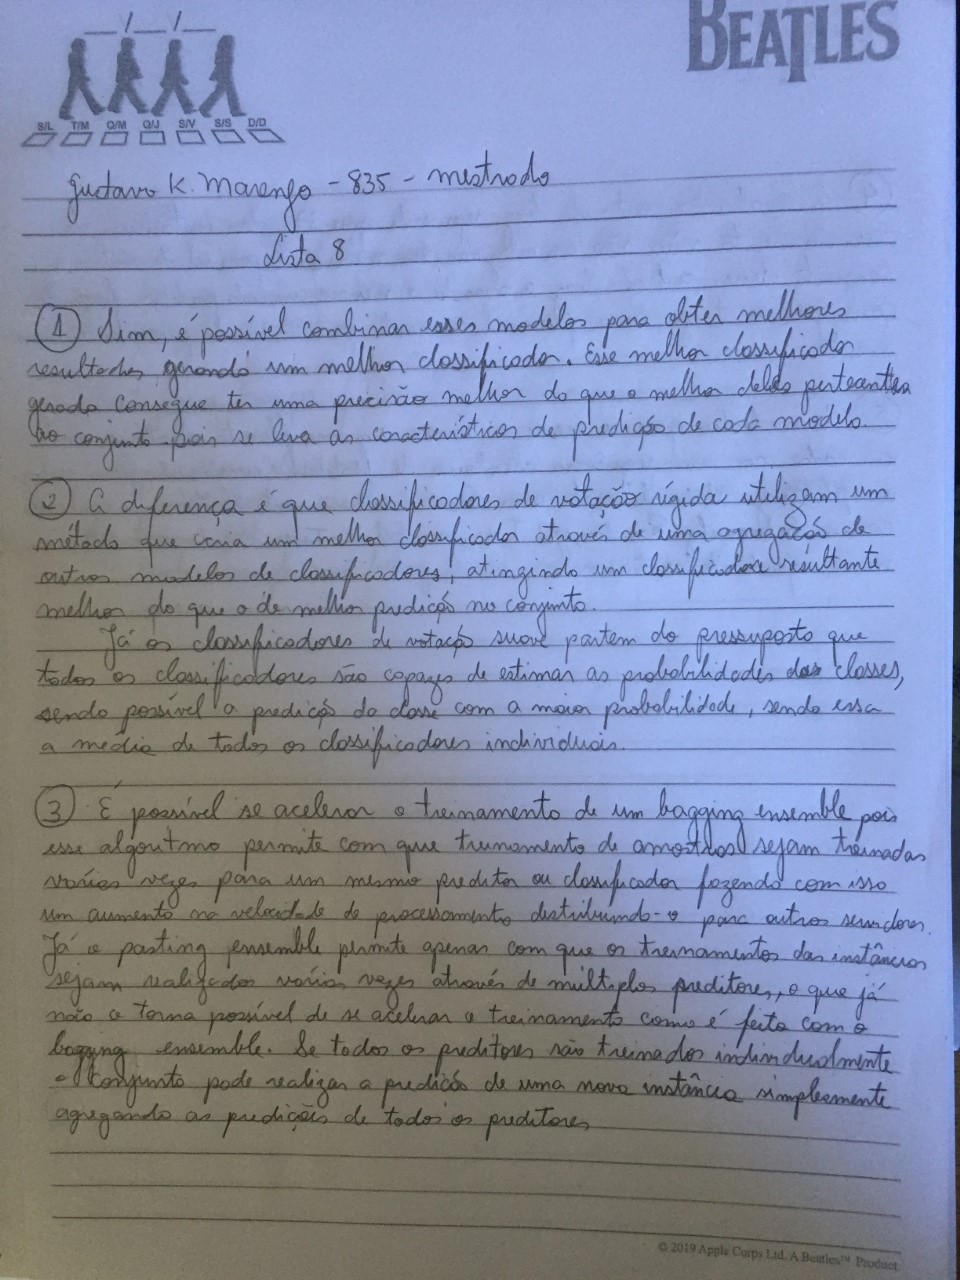 BEATLES
S/L T/M Q/M Q/J S/V S/S D/D
Gustavo K. Marengo - 835 - mestrado
Lista 8
1 Sim, é possível combinar esses modelos para obter melhores
resultados, gerando um melhor classificador. Esse melhor classificador
gerado consegue ter uma precisão melhor do que o melhor deles pertencentes
ao conjunto pois se leva as características de predição de cada modelo.
2 A diferença é que classificadores de votação rígida utilizam um
método que cria um melhor classificador através de uma agregação de
outros modelos de classificadores, atingindo um classificador resultante
melhor do que o de melhor predição no conjunto.
Já os classificadores de votação suave partem do pressuposto que
todos os classificadores são capazes de estimar as probabilidades das classes,
sendo possível a predição da classe com a maior probabilidade, sendo essa
a media de todos os classificadores individuais.
3 É possível se acelerar o treinamento de um bagging ensemble pois
esse algoritmo permite com que treinamento de amostras sejam treinadas
várias vezes para um mesmo preditor ou classificador fazendo com isso
um aumento na velocidade de processamento distribuindo-o para outros servidores.
Já o pasting ensemble permite apenas com que os treinamentos das instâncias
sejam realizados várias vezes através de múltiplos preditores, o que já
não o torna possível de se acelerar o treinamento como é feito com o
bagging ensemble. Se todos os preditores são treinados individualmente
o conjunto pode realizar a predição de uma nova instância simplesmente
agregando as predições de todos os preditores
© 2019 Apple Corps Ltd. A Beatles™ Product